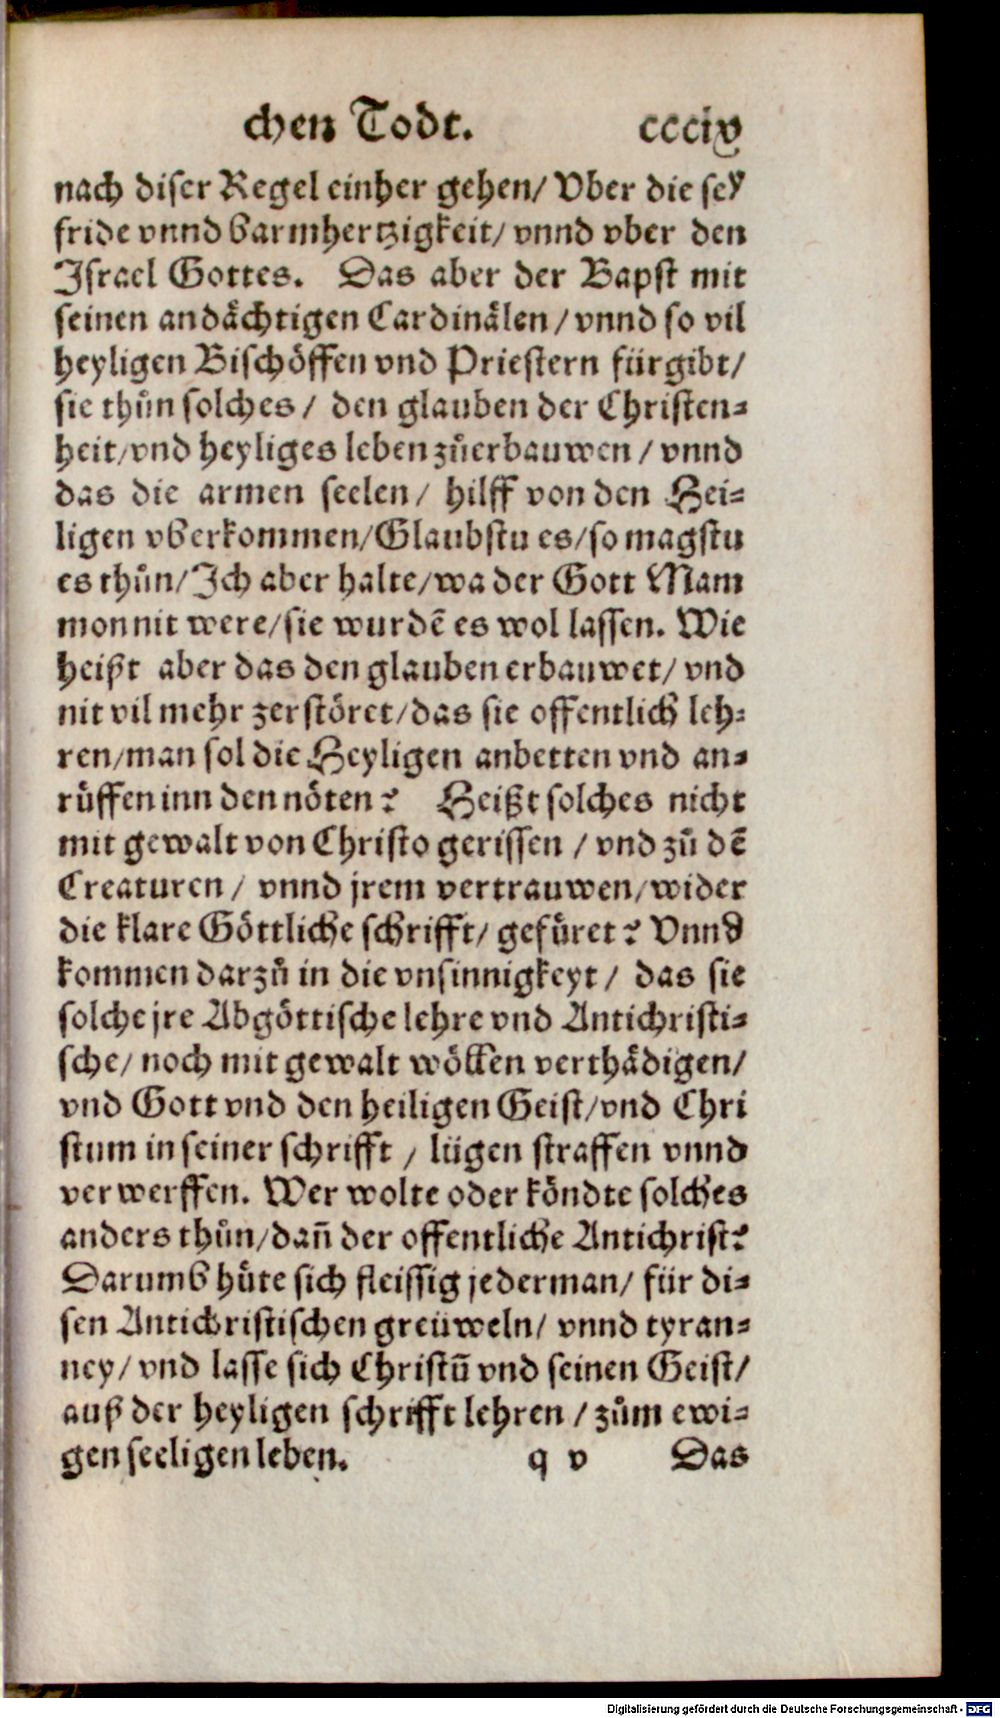 chen Todt. cccix
nach diser Regel einher gehen/ Vber die sey
fride vnnd barmhertzigkeit/ vnnd vber den
Israel Gottes. Das aber der Bapst mit
seinen andåchtigen Cardinålen / vnnd so vil
heyligen Bischöffen vnd Priestern fürgibt/
sie thůn solches / den glauben der Christen⸗
heit/vnd heyliges leben zůerbauwen / vnnd
das die armen seelen / hilff von den Hei⸗
ligen vberkommen/Glaubstu es/so magstu
es thůn/Ich aber halte/wa der Gott Mam
mon nit were/sie wurdē es wol lassen. Wie
heißt aber das den glauben erbauwet/ vnd
nit vil mehr zerstöret/das sie offentlich leh⸗
ren/man sol die Heyligen anbetten vnd an⸗
růffen inn den nöten? Heißt solches nicht
mit gewalt von Christo gerissen / vnd zů dē
Creaturen / vnnd jrem vertrauwen/wider
die klare Göttliche schrifft/ gefüret? Vnnd
kommen darzů in die vnsinnigkeyt / das sie
solche jre Abgöttische lehre vnd Antichristi⸗
sche/ noch mit gewalt wöllen verthådigen/
vnd Gott vnd den heiligen Geist/vnd Chri
stum in seiner schrifft / lügen straffen vnnd
verwerffen. Wer wolte oder köndte solches
anders thůn/dañ der offentliche Antichrist?
Darumb hüte sich fleissig jederman/ für di⸗
sen Antichristischen greüweln/ vnnd tyran⸗
ney/ vnd lasse sich Christū vnd seinen Geist/
auß der heyligen schrifft lehren / zům ewi⸗
gen seeligen leben. q v Das
Digitalisierung gefördert durch die Deutsche Forschungsgemeinschaft - DFG